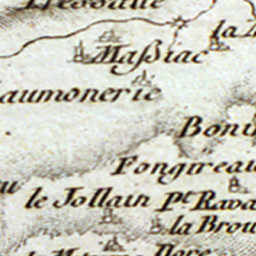 la
Maßiac
aumonerie
Boni
Fongireau
le Jollain Pt. Rava
la Brou